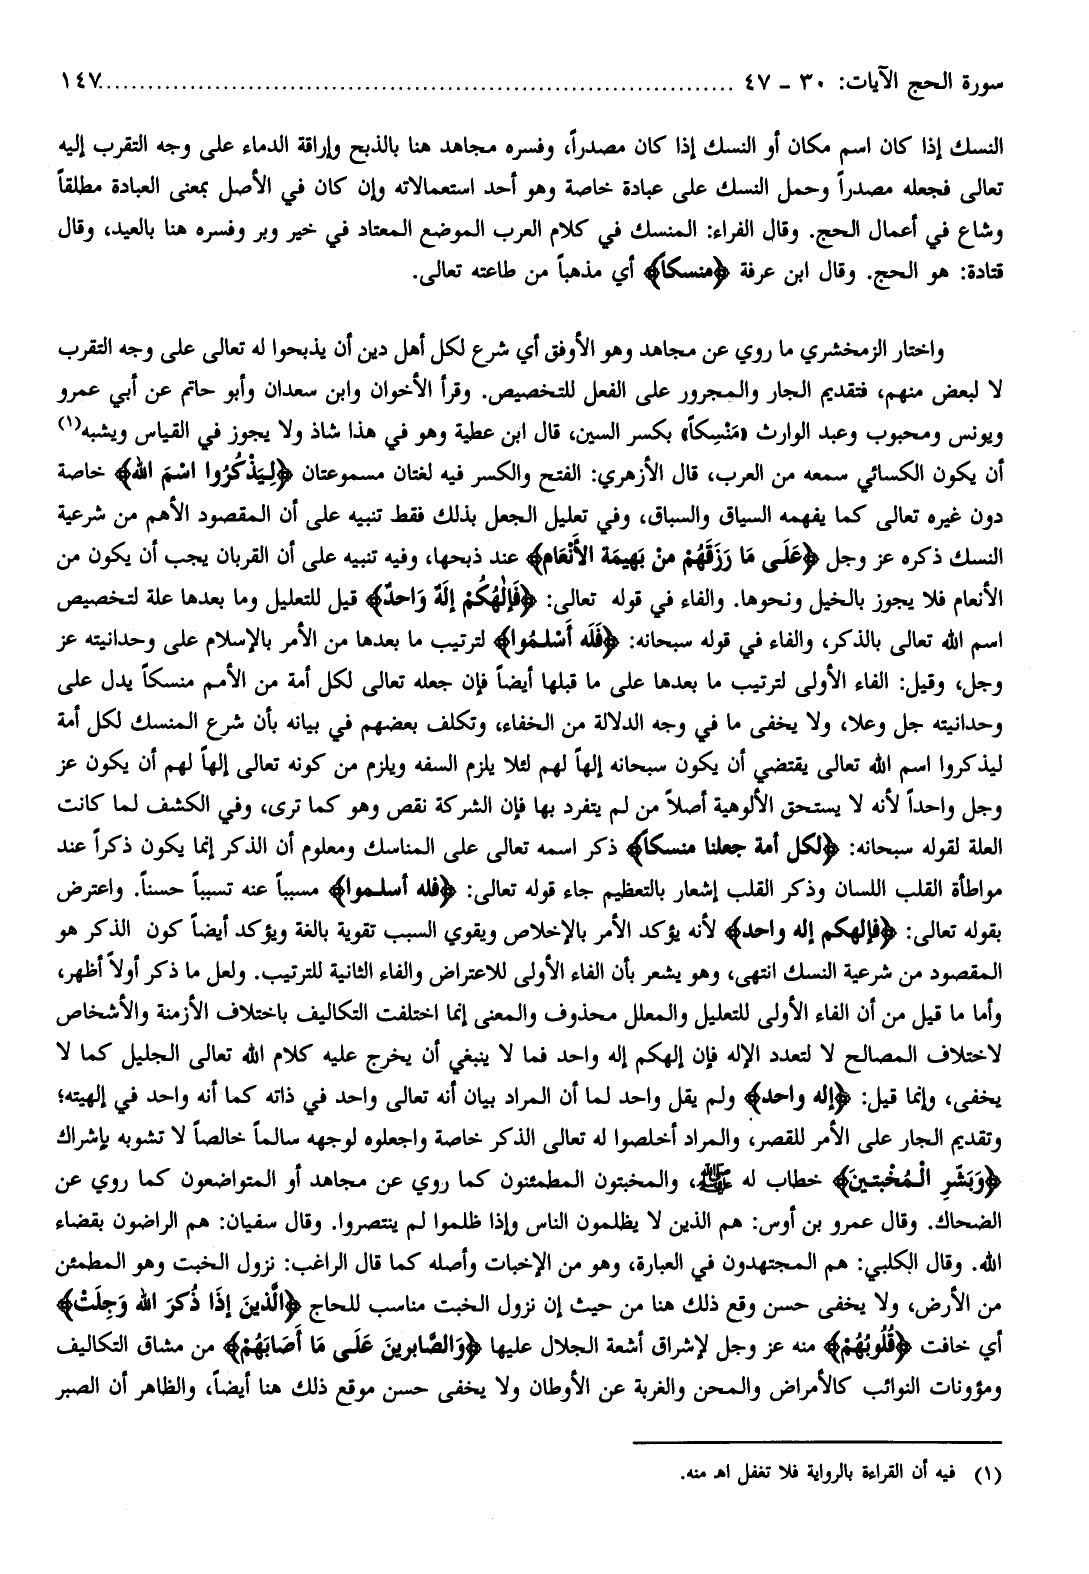 سورة الحج الآيات: ٣٠ - ٤٧ ........................................................................ ١٤٧
النسك إذا كان اسم مكان أو النسك إذا كان مصدراً، وفسره مجاهد هنا بالذبح وإراقة الدماء على وجه التقرب إليه
تعالى فجعله مصدراً وحمل النسك على عبادة خاصة وهو أحد استعمالاته وإن كان في الأصل بمعنى العبادة مطلقاً
وشاع في أعمال الحج. وقال الفراء: المنسك في كلام العرب الموضع المعتاد في خير وبر وفسره هنا بالعيد، وقال
قتادة: هو الحج. وقال ابن عرفة ﴿منسكاً﴾ أي مذهباً من طاعته تعالى.
واختار الزمخشري ما روي عن مجاهد وهو الأوفق أي شرع لكل أهل دين أن يذبحوا له تعالى على وجه التقرب
لا لبعض منهم، فتقديم الجار والمجرور على الفعل للتخصيص. وقرأ الأخوان وابن سعدان وأبو حاتم عن أبي عمرو
ويونس ومحبوب وعبد الوارث «مَنْسِكاً» بكسر السين، قال ابن عطية وهو في هذا شاذ ولا يجوز في القياس ويشبه(١)
أن يكون الكسائي سمعه من العرب، قال الأزهري: الفتح والكسر فيه لغتان مسموعتان ﴿لِيَذْكُرُوا اسْمَ الله﴾ خاصة
دون غيره تعالى كما يفهمه السياق والسباق، وفي تعليل الجعل بذلك فقط تنبيه على أن المقصود الأهم من شرعية
النسك ذكره عز وجل ﴿عَلَى مَا رَزَقَهُمْ منْ بَهيمَة الأَنْعَام﴾ عند ذبحها، وفيه تنبيه على أن القربان يجب أن يكون من
الأنعام فلا يجوز بالخيل ونحوها. والفاء في قوله تعالى: ﴿فَإلٰهُكُمْ إلَهٌ وَاحدٌ﴾ قيل للتعليل وما بعدها علة لتخصيص
اسم الله تعالى بالذكر، والفاء في قوله سبحانه: ﴿فَلَه أَسْلمُوا﴾ لترتيب ما بعدها من الأمر بالإسلام على وحدانيته عز
وجل، وقيل: الفاء الأولى لترتيب ما بعدها على ما قبلها أيضاً فإن جعله تعالى لكل أمة من الأمم منسكاً يدل على
وحدانيته جل وعلا، ولا يخفى ما في وجه الدلالة من الخفاء، وتكلف بعضهم في بيانه بأن شرع المنسك لكل أمة
ليذكروا اسم الله تعالى يقتضي أن يكون سبحانه إلهاً لهم لئلا يلزم السفه ويلزم من كونه تعالى إلهاً لهم أن يكون عز
وجل واحداً لأنه لا يستحق الألوهية أصلاً من لم يتفرد بها فإن الشركة نقص وهو كما ترى، وفي الكشف لما كانت
العلة لقوله سبحانه: ﴿لكل أمة جعلنا منسكاً﴾ ذكر اسمه تعالى على المناسك ومعلوم أن الذكر إنما يكون ذكراً عند
مواطأة القلب اللسان وذكر القلب إشعار بالتعظيم جاء قوله تعالى: ﴿فله أسلموا﴾ مسبباً عنه تسبباً حسناً. واعترض
بقوله تعالى: ﴿فإلهكم إله واحد﴾ لأنه يؤكد الأمر بالإخلاص ويقوي السبب تقوية بالغة ويؤكد أيضاً كون الذكر هو
المقصود من شرعية النسك انتهى، وهو يشعر بأن الفاء الأولى للاعتراض والفاء الثانية للترتيب. ولعل ما ذكر أولاً أظهر،
وأما ما قيل من أن الفاء الأولى للتعليل والمعلل محذوف والمعنى إنما اختلفت التكاليف باختلاف الأزمنة والأشخاص
لاختلاف المصالح لا لتعدد الإله فإن إلهكم إله واحد فما لا ينبغي أن يخرج عليه كلام الله تعالى الجليل كما لا
يخفى، وإنما قيل: ﴿إله واحد﴾ ولم يقل واحد لما أن المراد بيان أنه تعالى واحد في ذاته كما أنه واحد في إلهيته؛
وتقديم الجار على الأمر للقصر، والمراد أخلصوا له تعالى الذكر خاصة واجعلوه لوجهه سالماً خالصاً لا تشوبه بإشراك
﴿وَبَشّرِ الْمُخْبتينَ﴾ خطاب له ﷺ، والمخبتون المطمئنون كما روي عن مجاهد أو المتواضعون كما روي عن
الضحاك. وقال عمرو بن أوس: هم الذين لا يظلمون الناس وإذا ظلموا لم ينتصروا. وقال سفيان: هم الراضون بقضاء
الله. وقال الكلبي: هم المجتهدون في العبارة، وهو من الإخبات وأصله كما قال الراغب: نزول الخبت وهو المطمئن
من الأرض، ولا يخفى حسن وقع ذلك هنا من حيث إن نزول الخبت مناسب للحاج ﴿الَّذينَ إذَا ذُكرَ الله وَجِلَتْ﴾
أي خافت ﴿قُلُوبُهُمْ﴾ منه عز وجل لإشراق أشعة الجلال عليها ﴿وَالصَّابرينَ عَلَى مَا أَصَابَهُمْ﴾ من مشاق التكاليف
ومؤونات النوائب كالأمراض والمحن والغربة عن الأوطان ولا يخفى حسن موقع ذلك هنا أيضاً، والظاهر أن الصبر
(١) فيه أن القراءة بالرواية فلا تغفل اهـ منه.